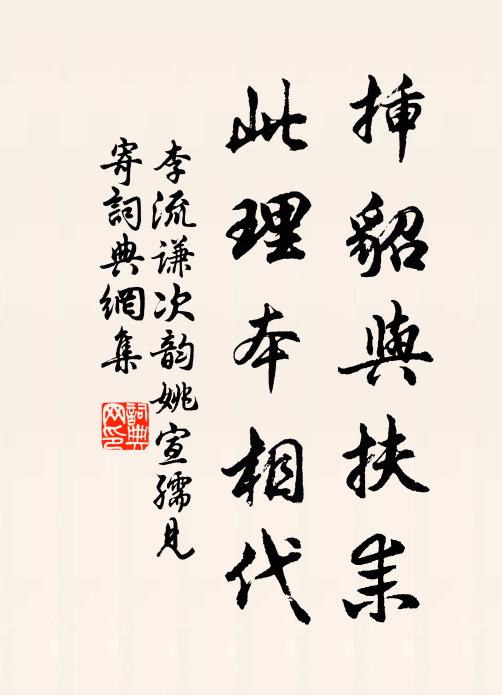 插貂與扶耒
此理本相代
李流謙次韵姚宣孺見
寄詞典網集
詞典网印